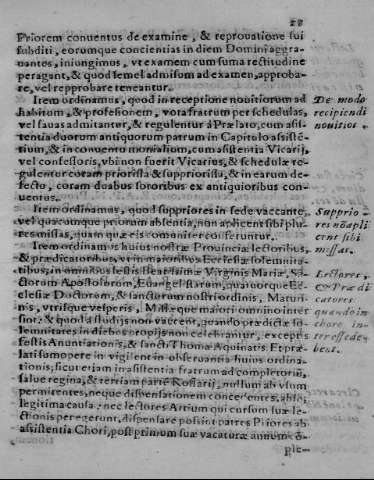 28
Priorem conventus de examine, & reprovatione sui
subditi, eorumque concientias in diem Domini aggra-
vantes, iniungimus, vt examem cum suma rectitudine
peragant, & quod semel admisum ad examen, approba-
re, vel repprobare teneantur.
Item ordinamus, quod in receptione novitiorum ad
habitum, & profesionem, vota fratrum per schedulas,
vel fauas admitantur, & regulentur á Prælato, cum asis-
tentia duorum antiquorum patrum in Capitolo asisté-
tium, & in conventu monialium, cum asistentia Vicarij,
vel confessoris, vbi non fuerit Vicarius, & schedulæ re-
gulentur coram priorissa & suppriorissa, & in earum de-
fecto, coram duabus sororibus ex antiquioribus con-
ventus.
Item ordinamus, quod suppriores in sede vaccante,
vel quacunque priorum absentia, non aplicent sibi plu-
res missas, quam quæ eis comuniter conferuntur.
Item ordinamus huius nostræ Provinciæ lectoribus,
& prædicatoribus, vt in maioribus Ecclesiæ solemnita-
tibus, in omnibus festis Mariæ, Virginis
ctorum Apostolorum, Euangelistarum, quatuorque Ec-
clesiæ Doctorem, & sanctorum nostri ordinis, Maturi-
nis, vtrisque vesperis, Missæque maiori omnino inter
sint: & quod studijs non vacent, quando prædictæ so-
lemnitates in diebus propijs non celebrantur, exceptis
festis Anuntiationis, & sancti Thomæ Aquinatis. Et præ-
lati sumopere in vigilent in obseruantia huius ordina-
tionis; sicut etiam in asistentia fratrum ad completoriũ,
salue regina, & tertiam partē Rossarij, nullum abusum
permitentes, neque dispensationem concedentes, absq;
legitima causa: nec lectores Artium qui cursum suæ le-
ctionis peregerunt, dispensare possint patres Priores ab
asistentia Chori, post primum suæ vacaturæ annum, ō
ple-
De modo
recipiendi
novitios.
Supprio
res nō apli
cent sibi
missas.
Lectores,
& Prædi
catores
quando in
choro in-
teresse de-
bent.